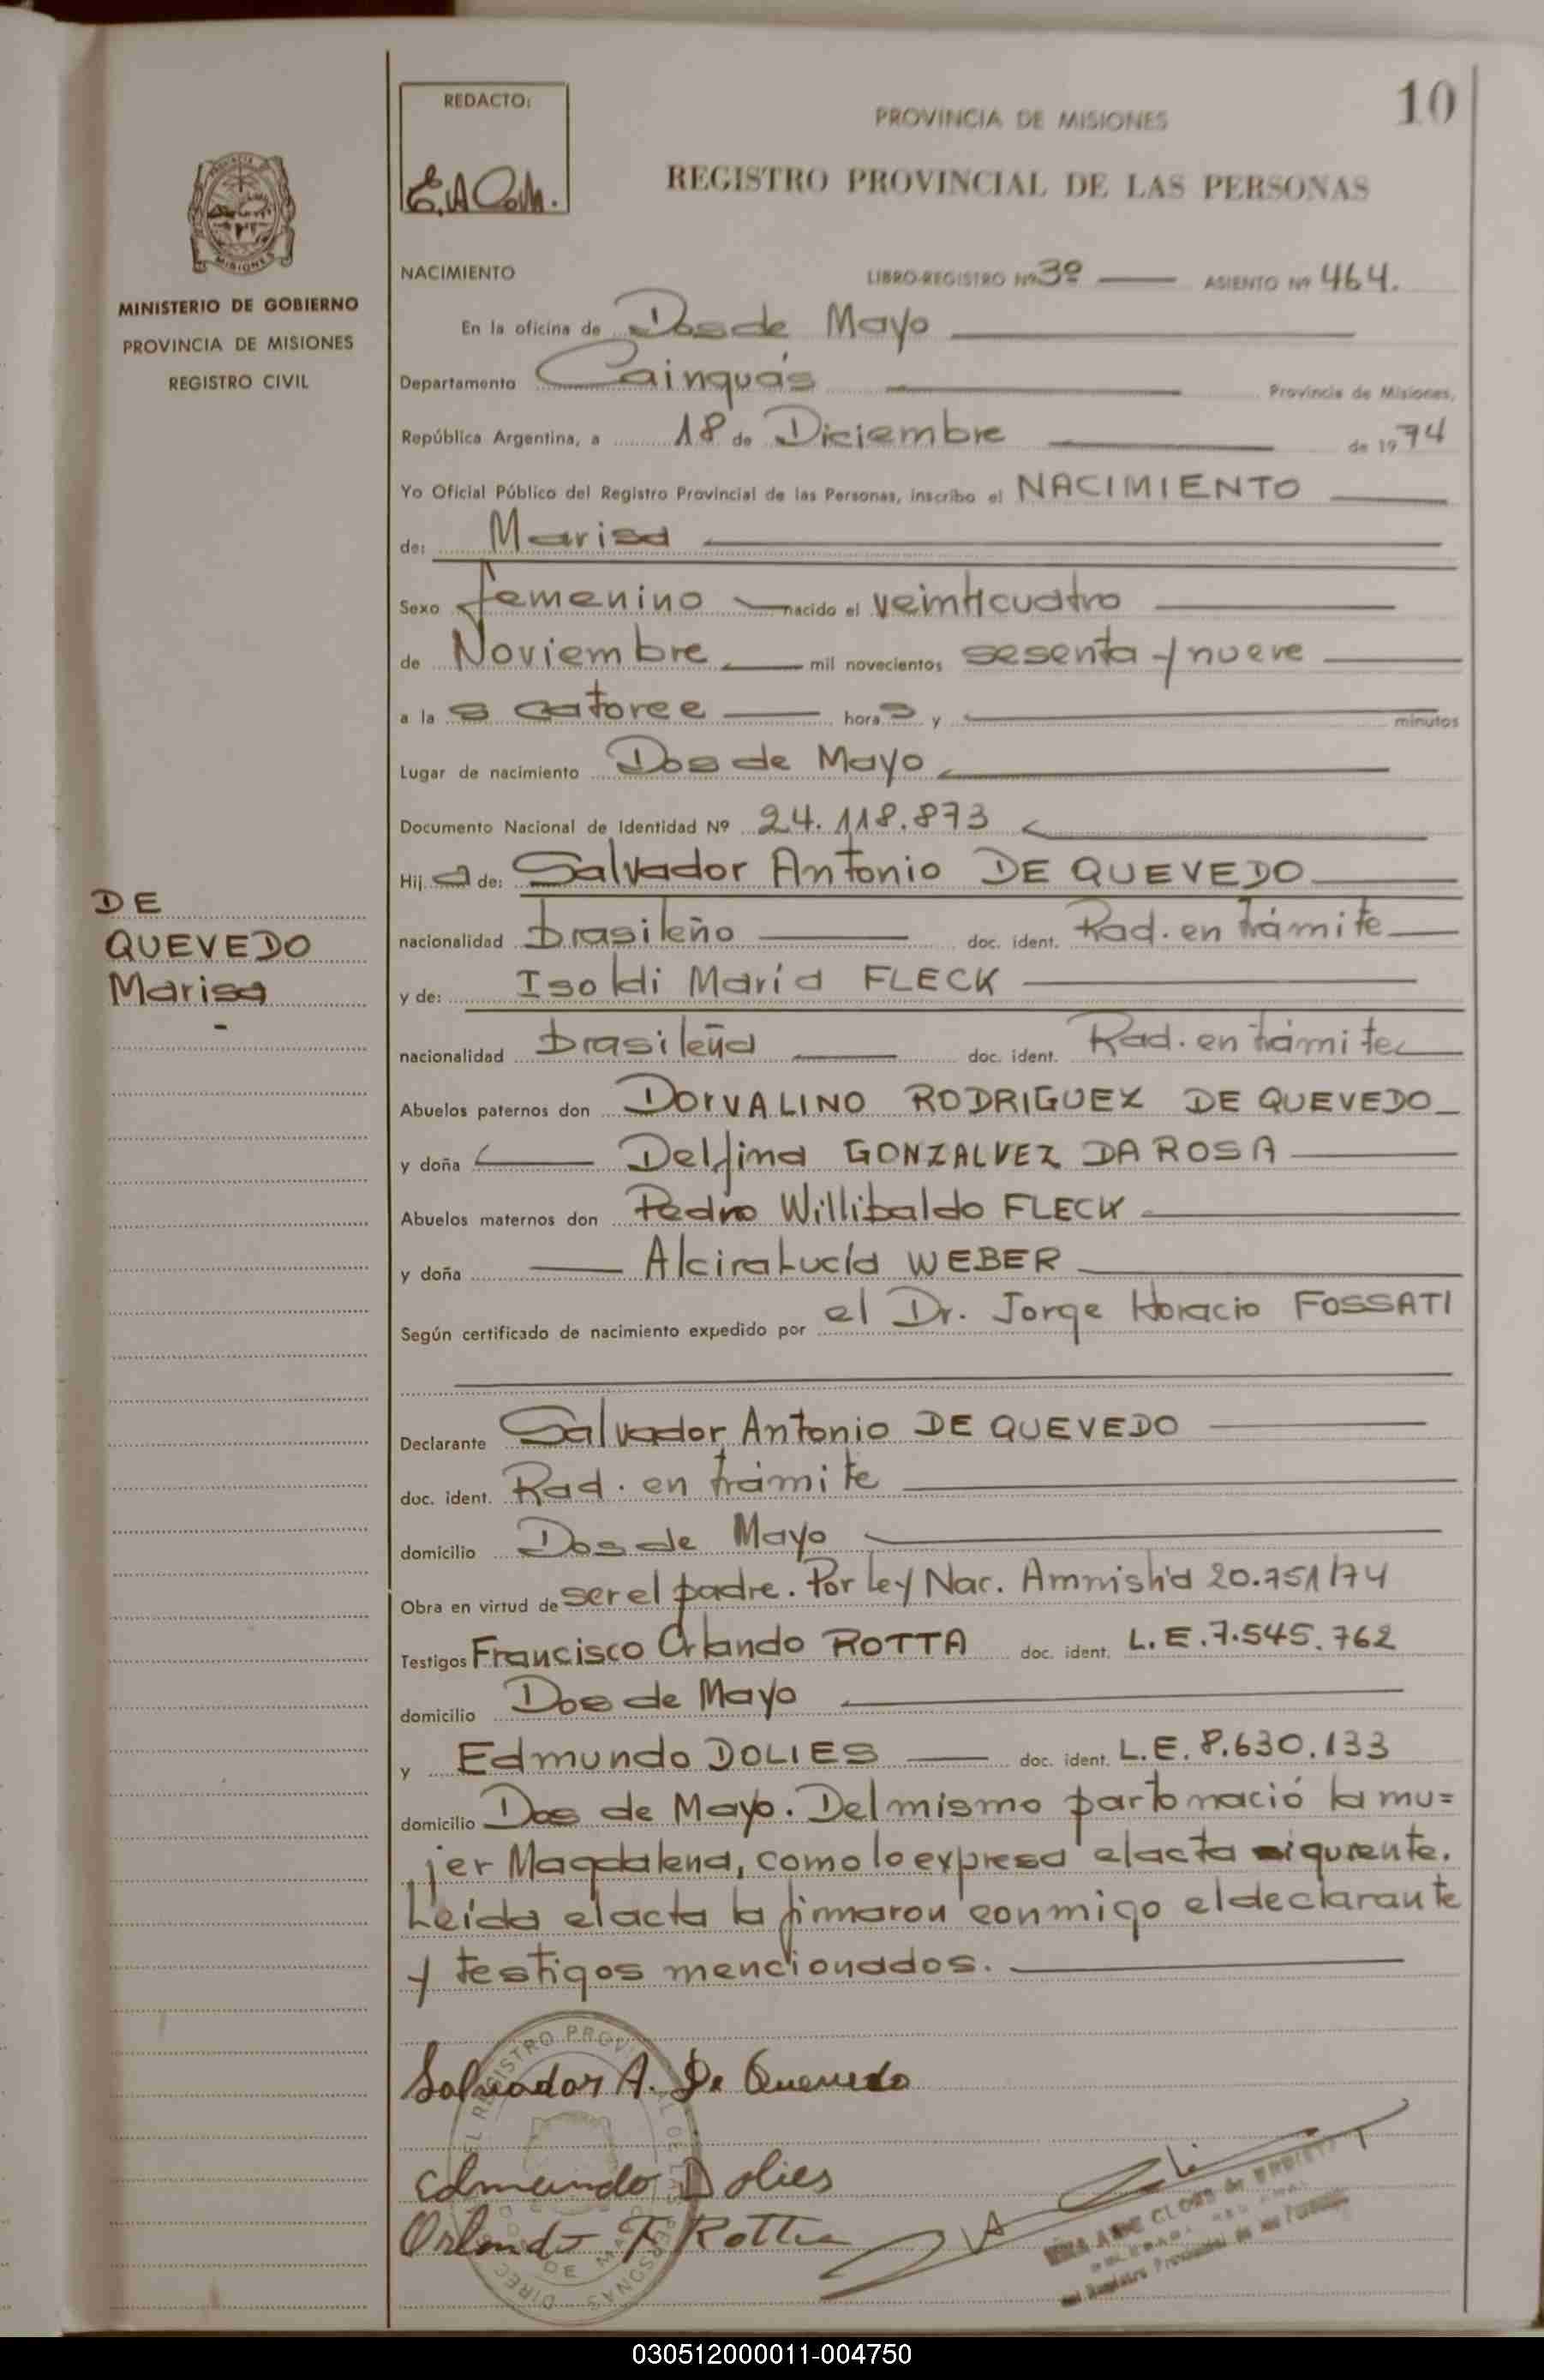 REDACTO:
10
PROVINCIA DE MISIONES
REGISTRO PROVINCIAL DE LAS PERSONAS
MISIONES
MINISTERIO DE GOBIERNO
PROVINCIA DE MISIONES
REGISTRO CIVIL
NACIMIENTO LIBRO-REGISTRO Nº 3º ASIENTO Nº 464.
En la oficina de Dos de Mayo
Departamento Cainguás Provincia de Misiones,
República Argentina, a 18 de Diciembre de 1974
Yo Oficial Público del Registro Provincial de las Personas, inscribo el NACIMIENTO
de: Marisa
Sexo femenino nacido el veinticuatro
de Noviembre mil novecientos sesenta y nueve
a las catorce horas y minutos
Lugar de nacimiento Dos de Mayo
Documento Nacional de Identidad Nº 24.118.873
Hija de: Salvador Antonio DE QUEVEDO
DE
QUEVEDO
Marisa
nacionalidad brasileño doc. ident. Rad. en trámite
y de: Isoldi María FLECK
nacionalidad brasileña doc. ident. Rad. en trámite
Abuelos paternos don DOrVALINO RODRIGUEZ DE QUEVEDO
y doña Delfina GONZALVEZ DA ROSA
Abuelos maternos don Pedro Willibaldo FLECK
y doña Alcira Lucía WEBER
Según certificado de nacimiento expedido por el Dr. Jorge Horacio FOSSATI
Declarante Salvador Antonio DE QUEVEDO
doc. ident. Rad. en trámite
domicilio Dos de Mayo
Obra en virtud de ser el padre. Por Ley Nac. Amnistía 20.751/74
Testigos Francisco Orlando ROTTA doc. ident. L.E. 7.545.762
domicilio Dos de Mayo
y Edmundo DOLIES doc. ident. L.E. 8.630.133
domicilio Dos de Mayo. Del mismo parto nació la mu=
jer Magdalena, como lo expresa el acta siguiente.
Leída el acta la firmaron conmigo el declarante
y testigos mencionados.
Salvador A. De Quevedo
Edmundo Dolies
Orlando F. Rotta
del Registro Provincial de las Personas
030512000011-004750